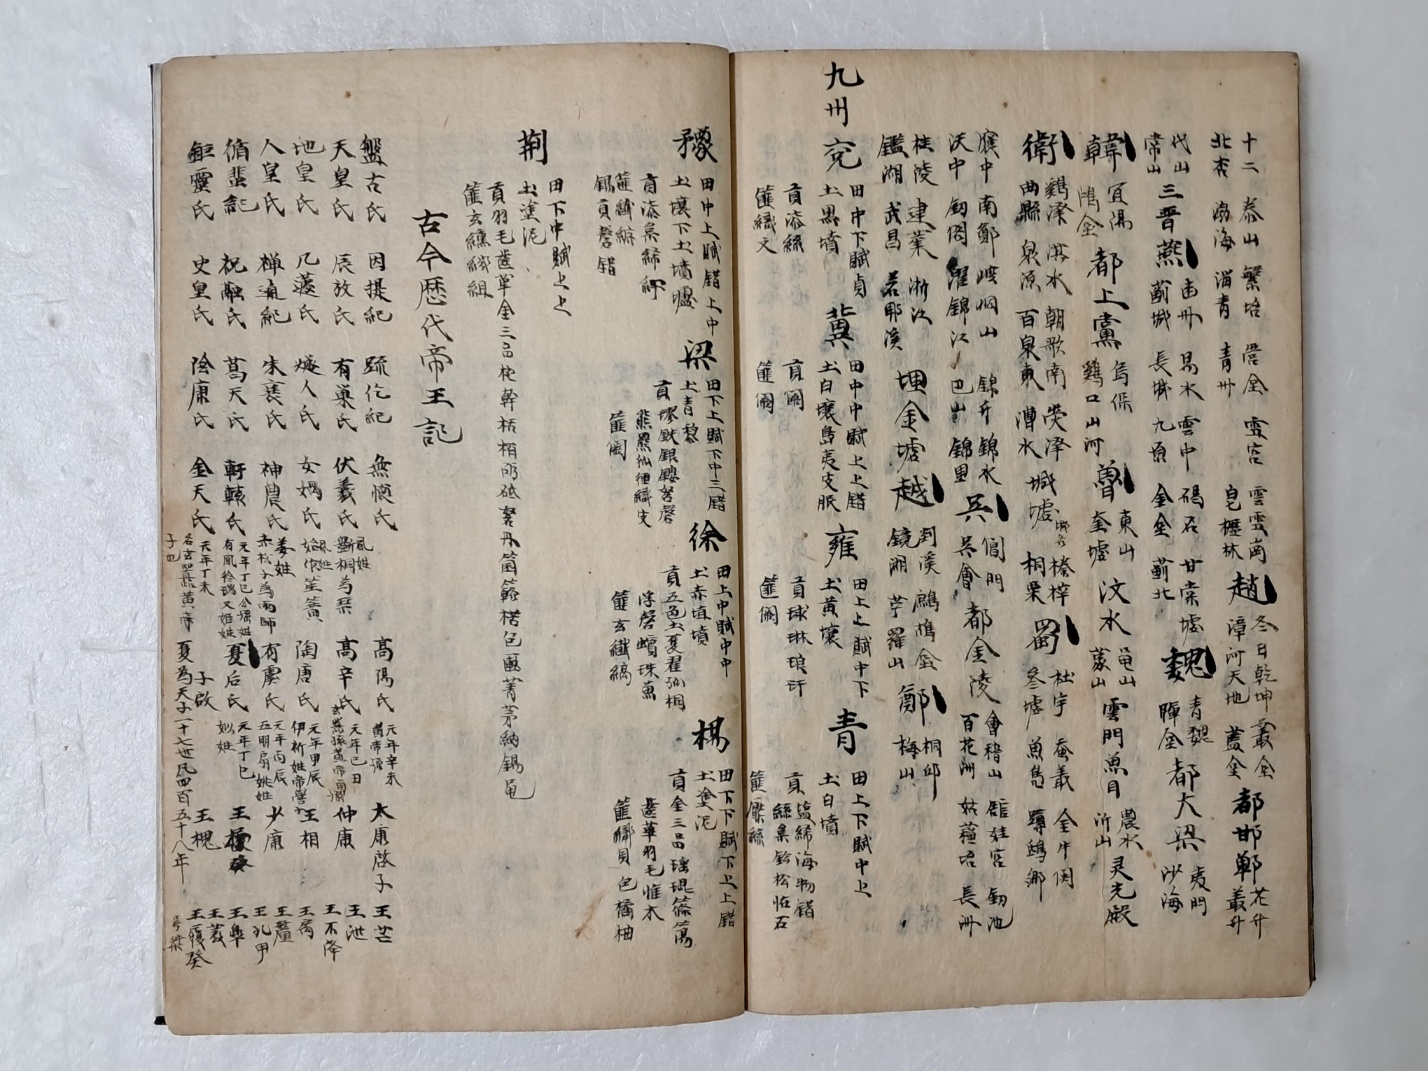 十二 泰山 繁峙 營全 靈宮 雲雲崗 趙 冬日乾坤 叢全 都邯鄲 花舟
北表 渤海 淄青 青卅 皂櫪林 漳河天地 蓋全 叢舟
代山 三晋 燕 幽州 易水 雲中 碣石 甘棠墟 魏 青魏 都大梁 夷門
常山 薊城 長城 九夷 金全 薊北 曄全 沙海
韓 宜陽 都上黨 烏保 魯 東山 汶水 龜山 雲門 魚目 農水 灵光殿
鴻全 鷄口山河 奎墟 蒙山 沂山
衛 鷄澤 淇水 朝歌南 熒澤 城墟 榛梓 蜀 杜宇 蚕叢 金牛関
曲縣 泉源 百泉東 漕水 桐栗 参墟 魚鳧 蹲鴟郷
腹中 南鄭 岷烟山 錦舟 錦水 呉 閶門 都金陵 會稽山 館娃宮 劒池
沃中 劒閣 濯錦江 巴山 錦里 呉會 百花洲 姑蘓臺 長洲
桂陵 建業 浙江 埋金墟 越 剡溪 鴟鳩全 鄭 桐邱
鑑湖 武昌 若耶溪 鏡湖 苧羅山 梅山
九州 兗 田中下賦貞 冀 田中中賦上上錯 雍 田上上賦中下 青 田上下賦中上
土黒墳 土白壤島夷支服 土黄壤 土白墳
貢添絲 貢闕 貢球琳琅玕 貢塩絺海物錯
絲枲鉛松恠石
篚織文 篚闕 篚闕 篚檿絲
豫 田中上賦錯上中 梁 田下上賦下中三錯 徐 田上中賦中中 楊 田下下賦下上上錯
土壤下土墳壚 土青黎 土赤埴墳 土塗泥
貢添枲絺紵 貢璆鉄銀鏤砮磬 貢五色土夏翟孤桐 貢金三品瑤琨篠簜
熊羆狐狸織皮 浮磬蠙珠魚 齒革羽毛惟木
篚纖纊 篚闕 篚玄纖縞 篚織貝包橘柚
錫貢磬錯
荆 田下中賦上上
土塗泥
貢羽毛齒革金三品杶幹栝栢砺砥砮丹箘簵楛包匭菁茅納錫龜
篚玄纁璣組
古今歴代帝王記
盤古氏 因提紀 䟽仡紀 無懷氏 風姓 髙陽氏 元年辛未 黄帝孫 太康啓子 王芒
天皇氏 辰放氏 有巢氏 伏羲氏 斲桐為琴 髙辛氏 元年己日 仲康 王泄
地皇氏 几蘧氏 燧人氏 女媧氏 始作笙簧 陶唐氏 元年甲辰 伊祈姓帝嚳子 王相 王不降
人皇氏 神通紀 朱襄氏 神農氏 姜姓 赤松子為雨師 有虞氏 元年丙辰 五明扇姚姓 少康 王扃
循蜚記 祝融氏 葛天氏 軒轅氏 元年丁巳公孫姓 有風后瑞又姬姓 夏后氏 元年丁巳 姒姓 王杼 王廑
鉅靈氏 史皇氏 陰康氏 金天氏 元年丁未 名玄嚣黄帝 子也 夏為天子一十七世凡四百五十八年 子啟 王槐
王孔甲
王皐
王發
王履癸
号桀